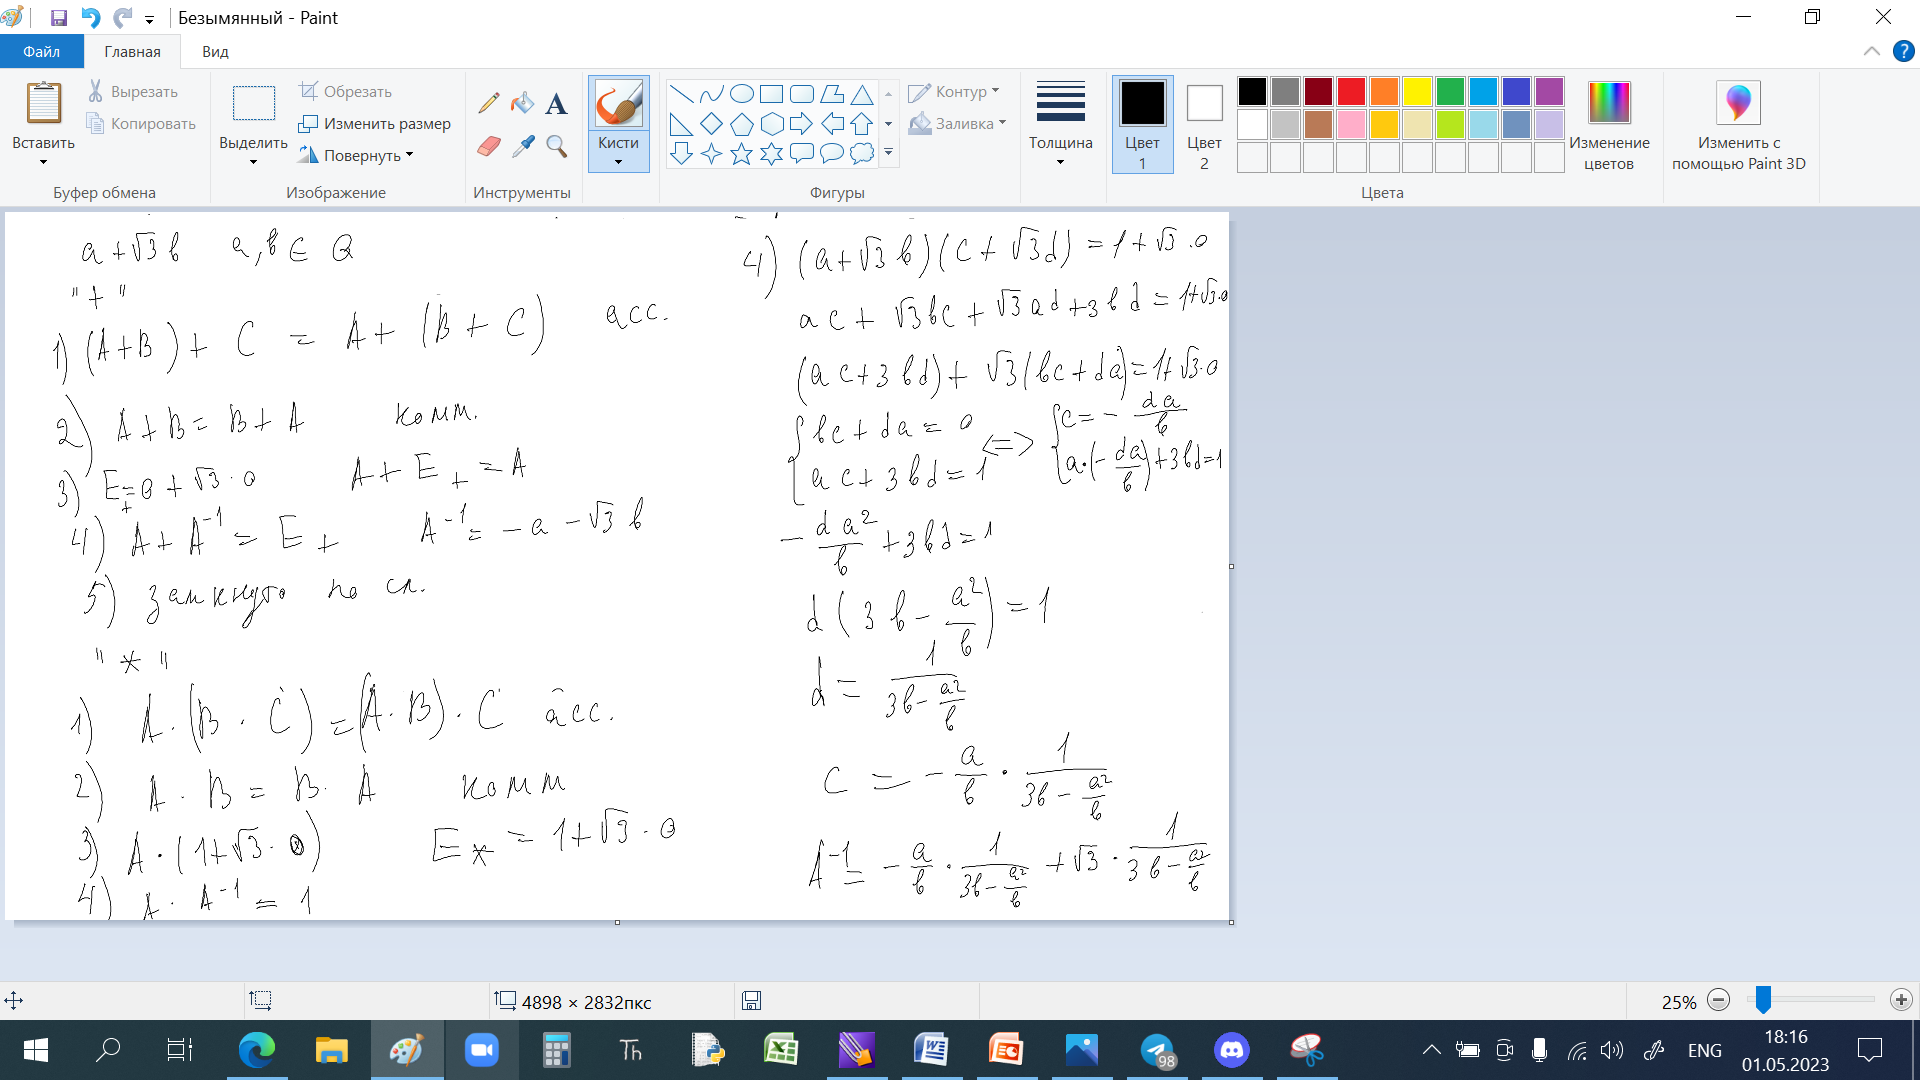 Безымянный - Paint
Файл Главная Вид
Вставить
Вырезать
Копировать
Буфер обмена
Выделить
Обрезать
Изменить размер
Повернуть
Изображение
A
Инструменты
Кисти
Контур
Заливка
Фигуры
Толщина
Цвет 1
Цвет 2
Изменение цветов
Цвета
Изменить с помощью Paint 3D
a + √3 b a, b ∈ Q
"+"
1) (A+B) + C = A + (B + C) асс.
2) A + B = B + A комм.
3) E₊ = 0 + √3 · 0 A + E₊ = A
4) A + A⁻¹ = E₊ A⁻¹ = -a - √3 b
5) замкнуто по сл.
"*"
1) A · (B · C) = (A · B) · C асс.
2) A · B = B · A комм
3) A · (1+√3 · 0) E* = 1+√3 · 0
4) A · A⁻¹ = 1
4) (a+√3 b)(c+√3d) = 1+√3 · 0
ac + √3bc + √3ad + 3bd = 1+√3·0
(ac+3bd) + √3(bc+da) = 1+√3·0
{bc + da = 0 <=> {c = - da/b
{ac + 3bd = 1 {a·(- da/b) + 3bd = 1
- da²/b + 3bd = 1
d(3b - a²/b) = 1
d = 1/(3b - a²/b)
c = - a/b · 1/(3b - a²/b)
A⁻¹ = - a/b · 1/(3b - a²/b) + √3 · 1/(3b - a²/b)
4898 × 2832пкс
25%
98
ENG
18:16
01.05.2023